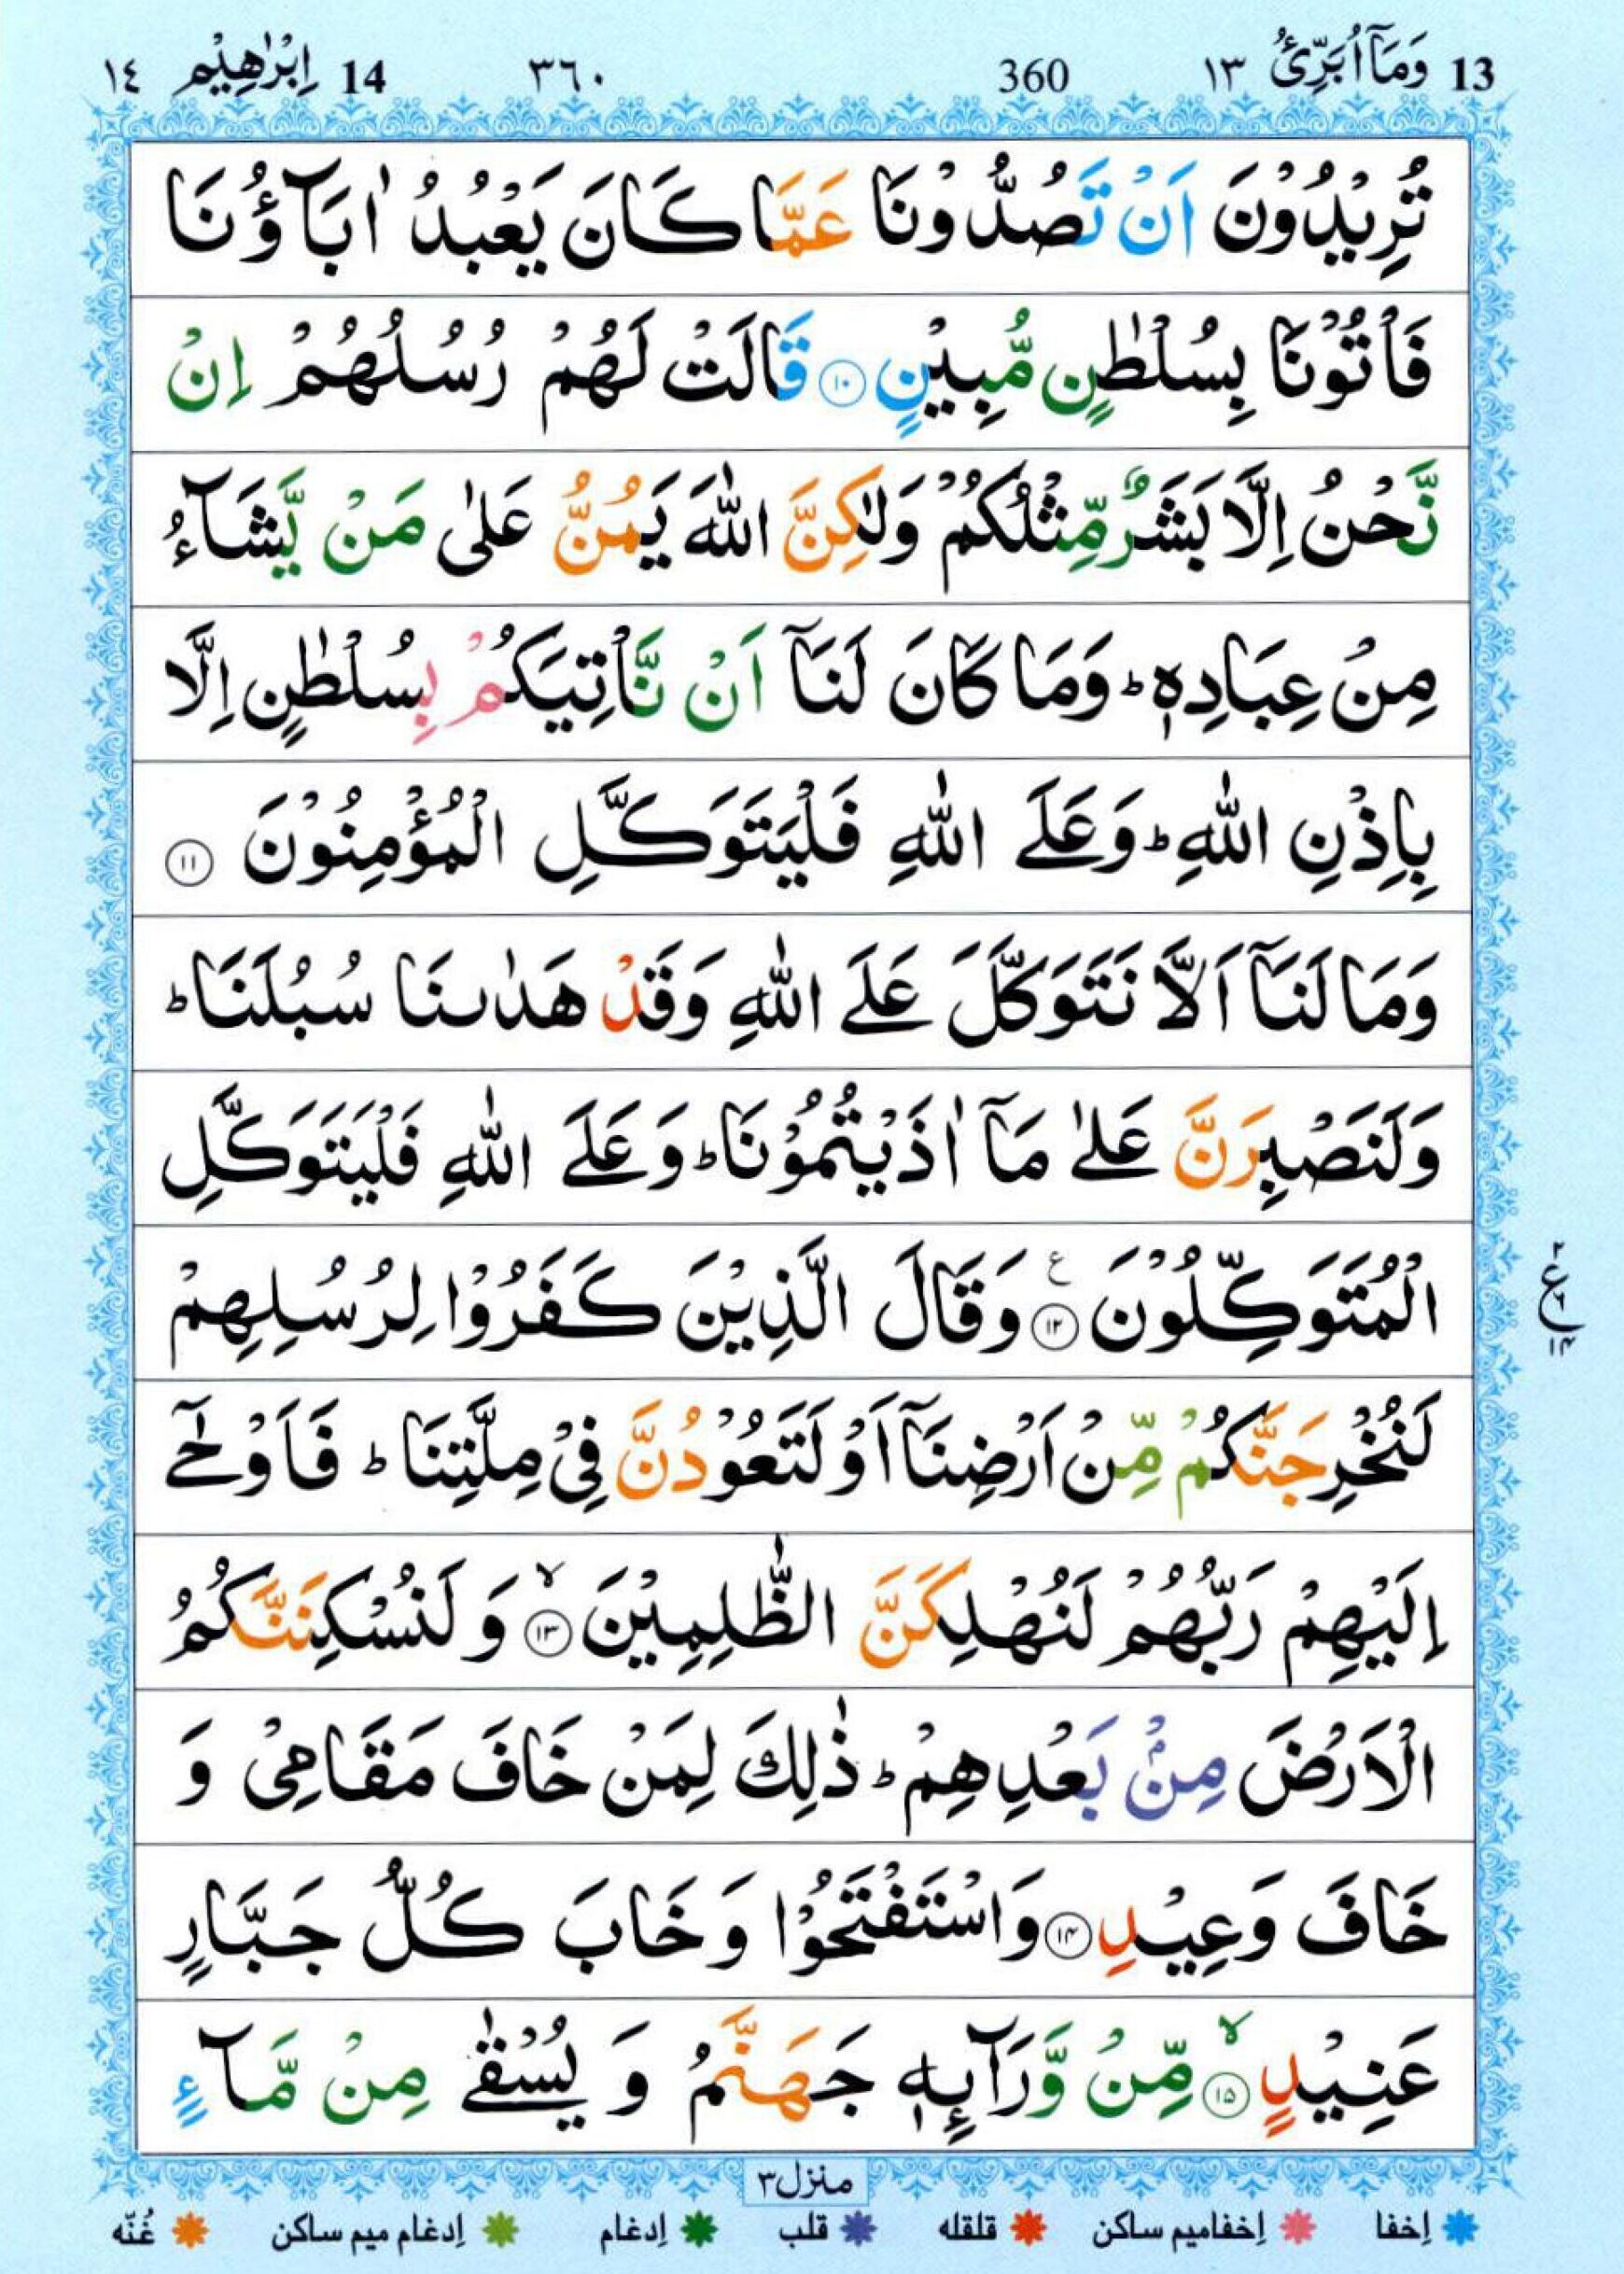 13 وَمَآ اُبَرِّئُ ١٣ 360 ٣٦٠ 14 اِبْرٰهِيْم ١٤
تُرِيْدُوْنَ اَنْ تَصُدُّوْنَا عَمَّا كَانَ يَعْبُدُ اٰبَآؤُنَا
فَاْتُوْنَا بِسُلْطٰنٍ مُّبِيْنٍ ۝١٠ قَالَتْ لَهُمْ رُسُلُهُمْ اِنْ
نَّحْنُ اِلَّا بَشَرٌ مِّثْلُكُمْ وَلٰكِنَّ اللّٰهَ يَمُنُّ عَلٰى مَنْ يَّشَآءُ
مِنْ عِبَادِهٖ ؕ وَمَا كَانَ لَنَآ اَنْ نَّاْتِيَكُمْ بِسُلْطٰنٍ اِلَّا
بِاِذْنِ اللّٰهِ ؕ وَعَلَى اللّٰهِ فَلْيَتَوَكَّلِ الْمُؤْمِنُوْنَ ۝١١
وَمَا لَنَآ اَلَّا نَتَوَكَّلَ عَلَى اللّٰهِ وَقَدْ هَدٰىنَا سُبُلَنَا ؕ
وَلَنَصْبِرَنَّ عَلٰى مَآ اٰذَيْتُمُوْنَا ؕ وَعَلَى اللّٰهِ فَلْيَتَوَكَّلِ
الْمُتَوَكِّلُوْنَ ۝١٢ ع وَقَالَ الَّذِيْنَ كَفَرُوْا لِرُسُلِهِمْ
٢ ع ٦ ١٤
لَنُخْرِجَنَّكُمْ مِّنْ اَرْضِنَآ اَوْ لَتَعُوْدُنَّ فِيْ مِلَّتِنَا ؕ فَاَوْحٰٓى
اِلَيْهِمْ رَبُّهُمْ لَنُهْلِكَنَّ الظّٰلِمِيْنَ ۝١٣ ۙ وَ لَنُسْكِنَنَّكُمُ
الْاَرْضَ مِنْۢ بَعْدِهِمْ ؕ ذٰلِكَ لِمَنْ خَافَ مَقَامِيْ وَ
خَافَ وَعِيْدِ ۝١٤ وَاسْتَفْتَحُوْا وَخَابَ كُلُّ جَبَّارٍ
عَنِيْدٍ ۝١٥ ۙ مِّنْ وَّرَآئِهٖ جَهَنَّمُ وَ يُسْقٰى مِنْ مَّآءٍ
منزل ٣
اِخفا اِخفامیم ساکن قلقله قلب اِدغام اِدغام میم ساکن غُنّه